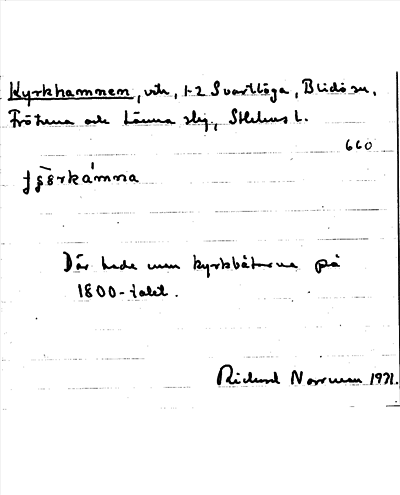 Kyrkhamnen, vik, 1-2 Svartlöga, Blidö sn,
Frötuna och Länna slg, Sthlms l.
660
Där hade man kyrkbåtarna på
1800-talet.
Rickard Norrman 1971.